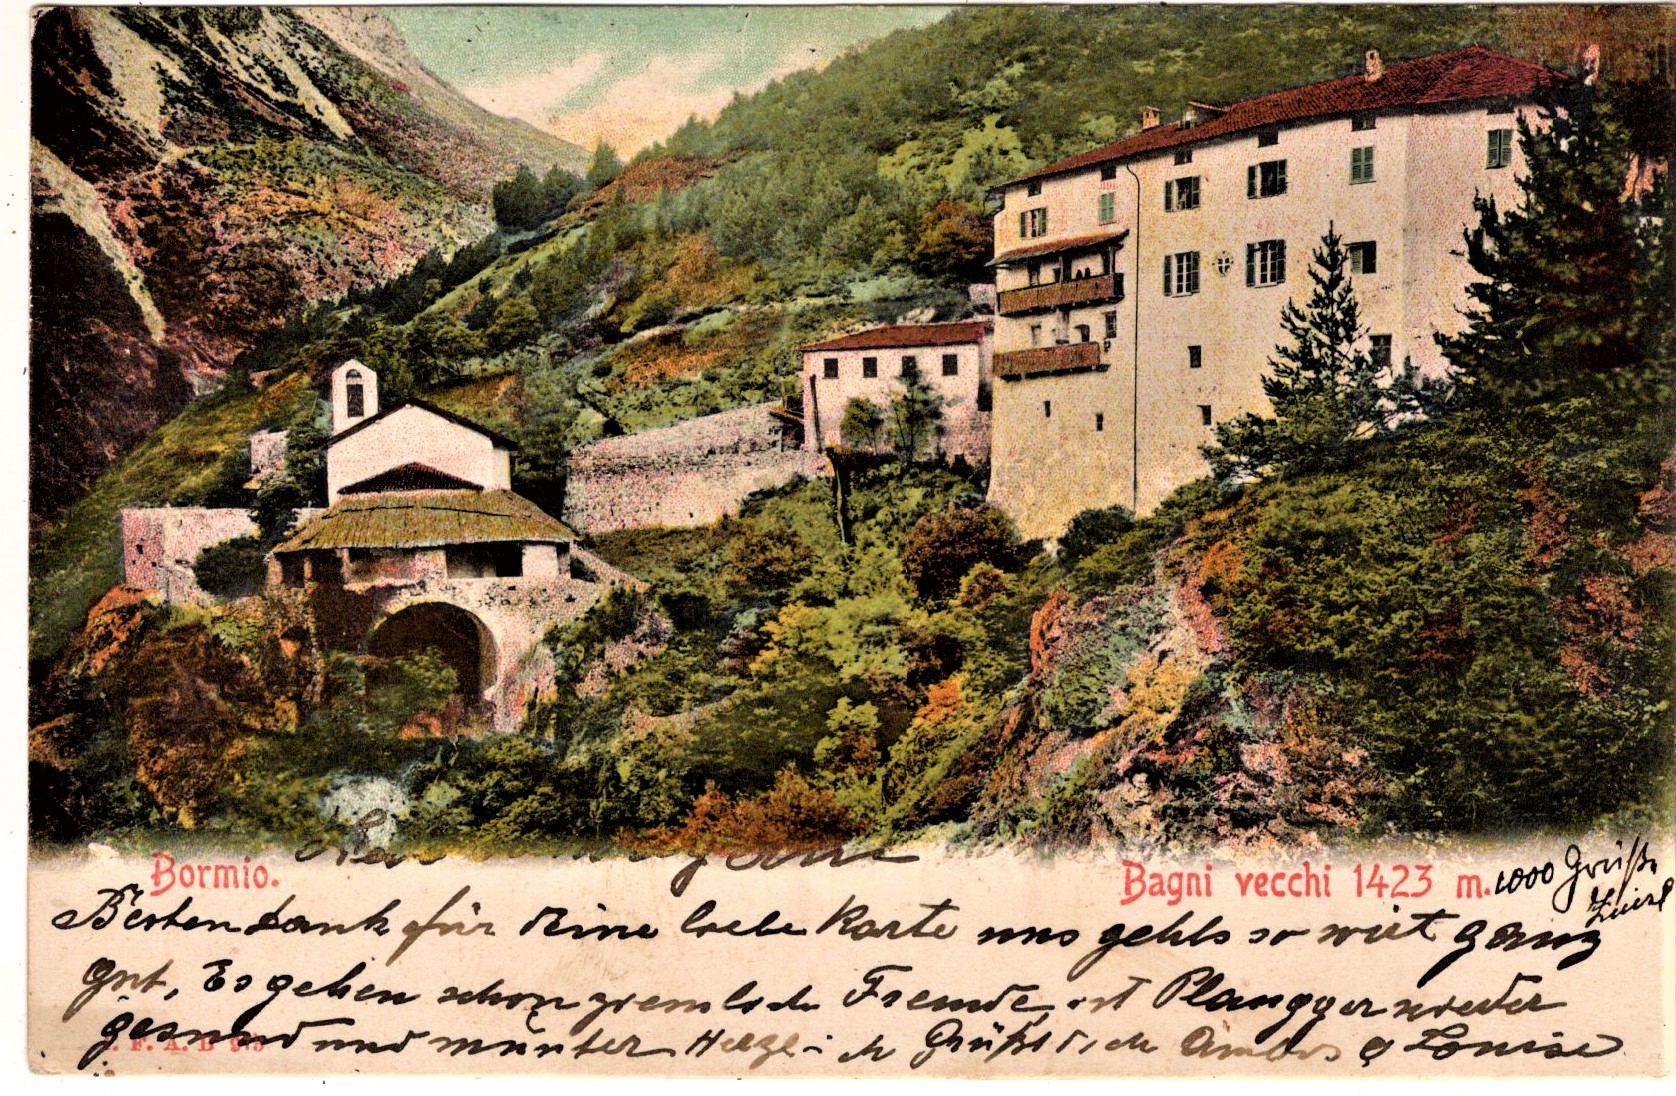 Bormio.
Bagni vecchi 1423 m.
1000 Grüße
Besten dank für Deine liebe Karte uns gehts so weit ganz
gut, Es gehen schon ziemlich Fremde, ist Plangger wieder
gesund und munter Herzlich Grüßt dich Louise